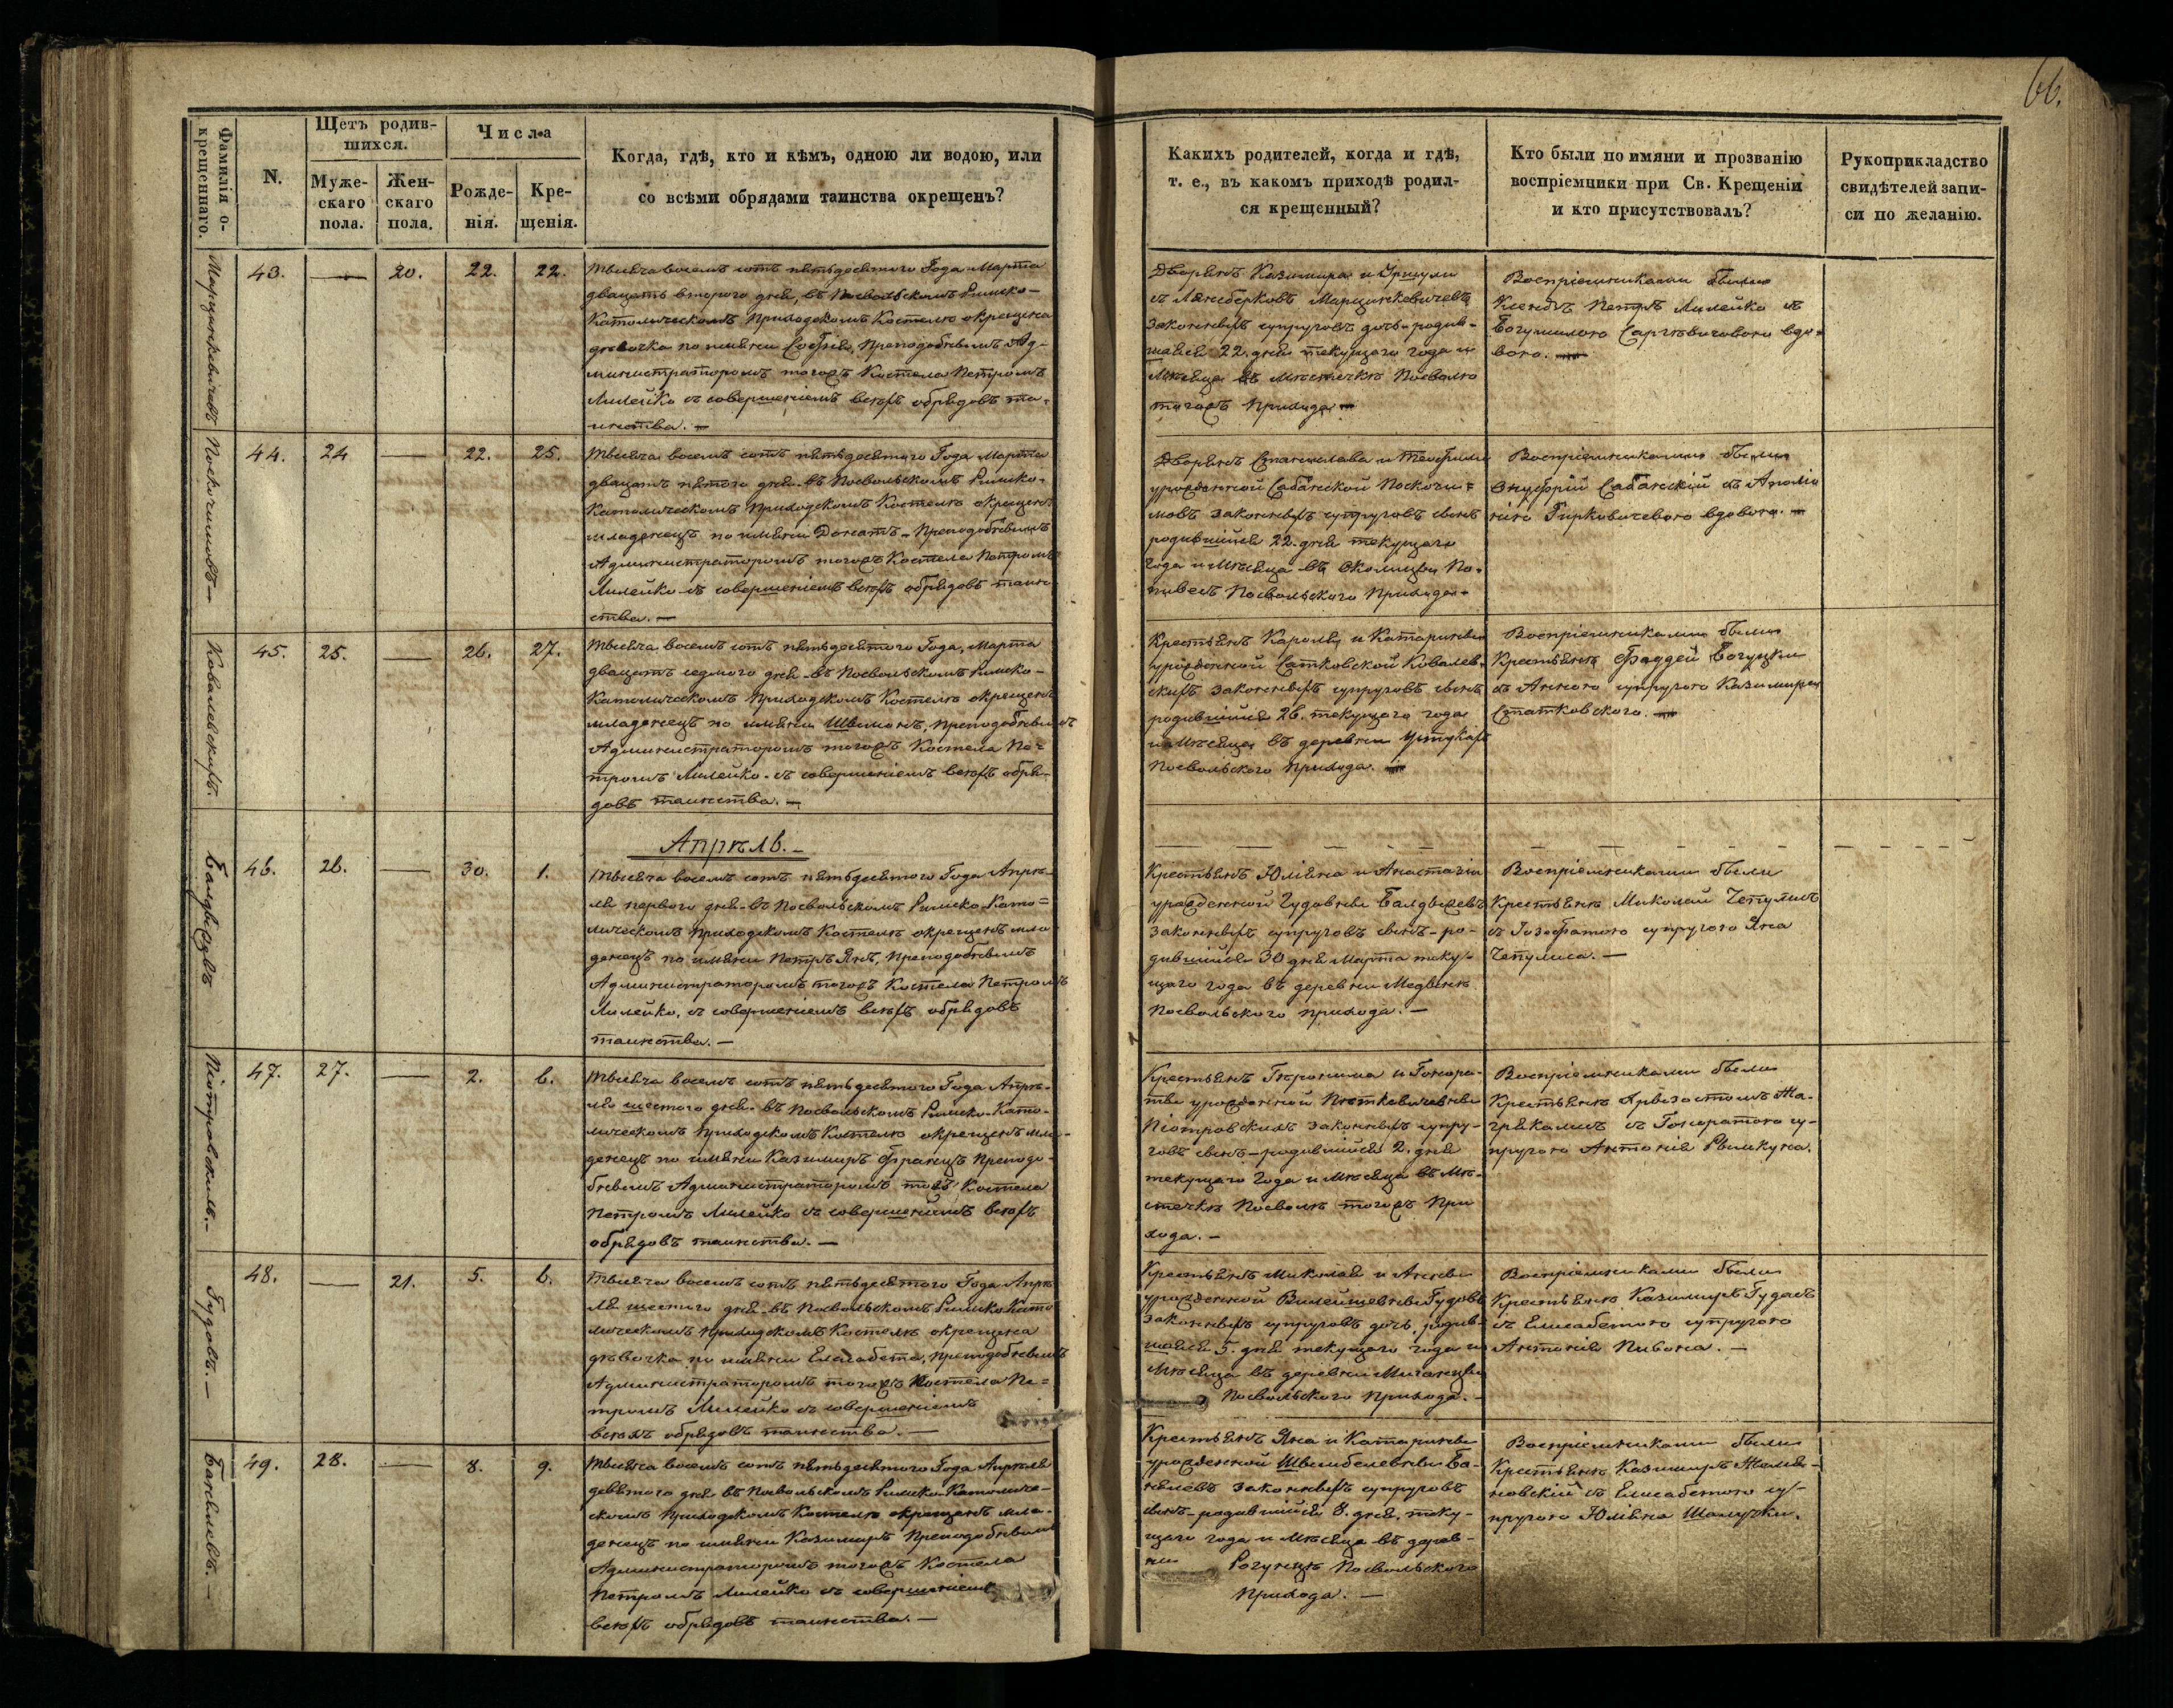 66.
Фамилія о-
крещеннаго.
N.
Щетъ родив-
шихся.
Муже-
скаго
пола.
Жен-
скаго
пола.
Числа
Рожде-
нія.
Кре-
щенія.
Когда, гдѣ, кто и кѣмъ, одною ли водою, или
со всѣми обрядами таинства окрещенъ?
Какихъ родителей, когда и гдѣ,
т. е., въ какомъ приходѣ родил-
ся крещенный?
Кто были по имяни и прозванію
воспріемники при Св. Крещеніи
и кто присутствовалъ?
Рукоприкладство
свидѣтелей запи-
си по желанію.
Марцинкевичевъ
43.
—
20.
22.
22.
Тысяча восемъ сотъ пятьдесятого Года Марта
двацать второго дня, въ Посвольскомъ Римско-
Католическомъ Приходскомъ Костелѣ окрещена
дѣвочка по имяни Софія, Преподобнымъ Ад-
министраторомъ тогожъ Костела Петромъ
Лилейко съ совершеніемъ всѣхъ обрядовъ та-
инства. —
Дворянъ Казимира и Уршули
съ Лянсберковъ Марцинкевичевъ
законныхъ супруговъ дочь-родив-
шаяся 22. дня текущаго года и
Мѣсяца въ Мѣстечкѣ Посволю
тогожъ Прихода —
Воспріемниками были
Ксендзъ Петръ Лилейко съ
Богумилою вдо-
вою. —
Поскочимовъ —
44.
24
—
22.
25.
Тысяча восемъ сотъ пятьдесятого Года Марта
двацать пятого дня въ Посвольскомъ Римско-
Католическомъ Приходскомъ Костелѣ окрещенъ
младенецъ по имяни Донатъ - Преподобнымъ
Администраторомъ тогожъ Костела Петромъ
Лилейко съ совершеніемъ всѣхъ обрядовъ таин
ства. —
Дворянъ Станислава и Теофили
урожденной Сабанской Поскочи-
мовъ законныхъ супруговъ сынъ
родившійся 22. дня текущаго
Года и Мѣсяца въ Околицы По-
Посвольского Прихода
Воспріемниками были
Онуфрій Сабанскій съ Аполіо
ніею Гирковичевою вдовою. —
Ковалевскихъ.
45.
25.
—
26.
27.
Тысяча восемъ сотъ пятьдесятого Года, Марта
двацать седмого дня въ Посвольскомъ Римско-
Католическомъ Приходскомъ Костелѣ окрещенъ
младенецъ по имяни Шымонъ, Преподобнымъ
Администраторомъ тогожъ Костела Пе-
тромъ Лилейко съ совершеніемъ всѣхъ обря-
довъ таинства. —
Крестьянъ Кароля и Катарины
урожденной Сатковской Ковалев-
скихъ законныхъ супруговъ сынъ
родившійся 26. текущаго года
и Мѣсяца въ деревни Устукахъ
Посвольского Прихода.
Воспріемниками были
Крестьяне Фаддей Богуцки
съ Анною супругою Казимира
Статковского.
Апрѣль. —
Балдызевъ
46.
26.
—
30.
1.
Тысяча восемъ сотъ пятьдесятого Года Апрѣ-
ля первого дня въ Посвольскомъ Римско-Като-
лическомъ Приходскомъ Костелѣ окрещенъ мла
денецъ по имяни Петръ Янъ, Преподобнымъ
Администраторомъ тогожъ Костела Петромъ
Лилейко, съ совершеніемъ всѣхъ обрядовъ
таинства. —
Крестьянъ Юліяна и Анастазіи
урожденной Гудовны Балдызевъ
законныхъ супруговъ сынъ-ро-
дившійся 30 дня Марта теку-
щаго года въ деревни Медынѣ
Посвольского прихода. —
Воспріемниками были
Крестьяне Миколай Чепулисъ
съ Іозефатою супругою Яна
Чепулиса. —
Піотровскихъ. —
47.
27.
—
2.
6.
Тысяча восемъ сотъ пятьдесятого Года Апрѣ-
ля шестого дня въ Посвольскомъ Римско-Като-
лическомъ Приходскомъ Костелѣ окрещенъ мла-
денецъ по имяни Казимиръ Францъ Преподо-
бнымъ Администраторомъ тогожъ Костела
Петромъ Лилейко съ совершеніемъ всѣхъ
обрядовъ таинства. —
Крестьянъ Гѣронима и Гонора-
ты урожденной Пѣткевичевны
Піотровскихъ законныхъ супру-
говъ сынъ-родившійся 2. дня
текущаго Года и Мѣсяца въ Мѣ-
стечкѣ Посволѣ тогожъ При
хода. —
Воспріемниками были
Крестьяне Хрызостомъ
съ Гоноратою су-
пругою Антонія Рымкуна.
Гудовъ. —
48.
—
21.
5.
6.
Тысяча восемъ сотъ пятьдесятого Года Апрѣ
ля шестого дня въ Посвольскомъ Римско Като
лическомъ Приходскомъ Костелѣ окрещена
дѣвочка по имяни Елисабета, Преподобнымъ
Администраторомъ тогожъ Костела Пе-
тромъ Лилейко съ совершеніемъ
всѣхъ обрядовъ таинства. —
Крестьянъ Миколая и Анны
урожденной Вилейшевны Гудовъ
законныхъ супруговъ дочь, родив-
шаяся 5. дня текущаго года и
Мѣсяца въ деревни
Посвольского Прихода. —
Воспріемниками были
Крестьяне Казимиръ Гудасъ
съ Елисабетою супругою
Антонія Пивона. —
Банялевъ. —
49.
28.
—
8.
9.
Тысяча восемъ сотъ пятьдесятого Года Апрѣля
девятого дня въ Посвольскомъ Римско-Католиче-
скомъ Приходскомъ Костелѣ окрещенъ мла-
денецъ по имяни Казимиръ Преподобнымъ
Администраторомъ тогожъ Костела
Петромъ Лилейко съ совершеніемъ
всѣхъ обрядовъ таинства. —
Крестьянъ Яна и Катарины
урожденной Швембелевны Ба-
нялевъ законныхъ супруговъ
сынъ-родившійся 8. дня, теку-
щаго года и Мѣсяца въ дерев-
ни Посвольского
Прихода. —
Воспріемниками были
Крестьяне Казимиръ
съ Елисабетою су-
пругою Юліяна